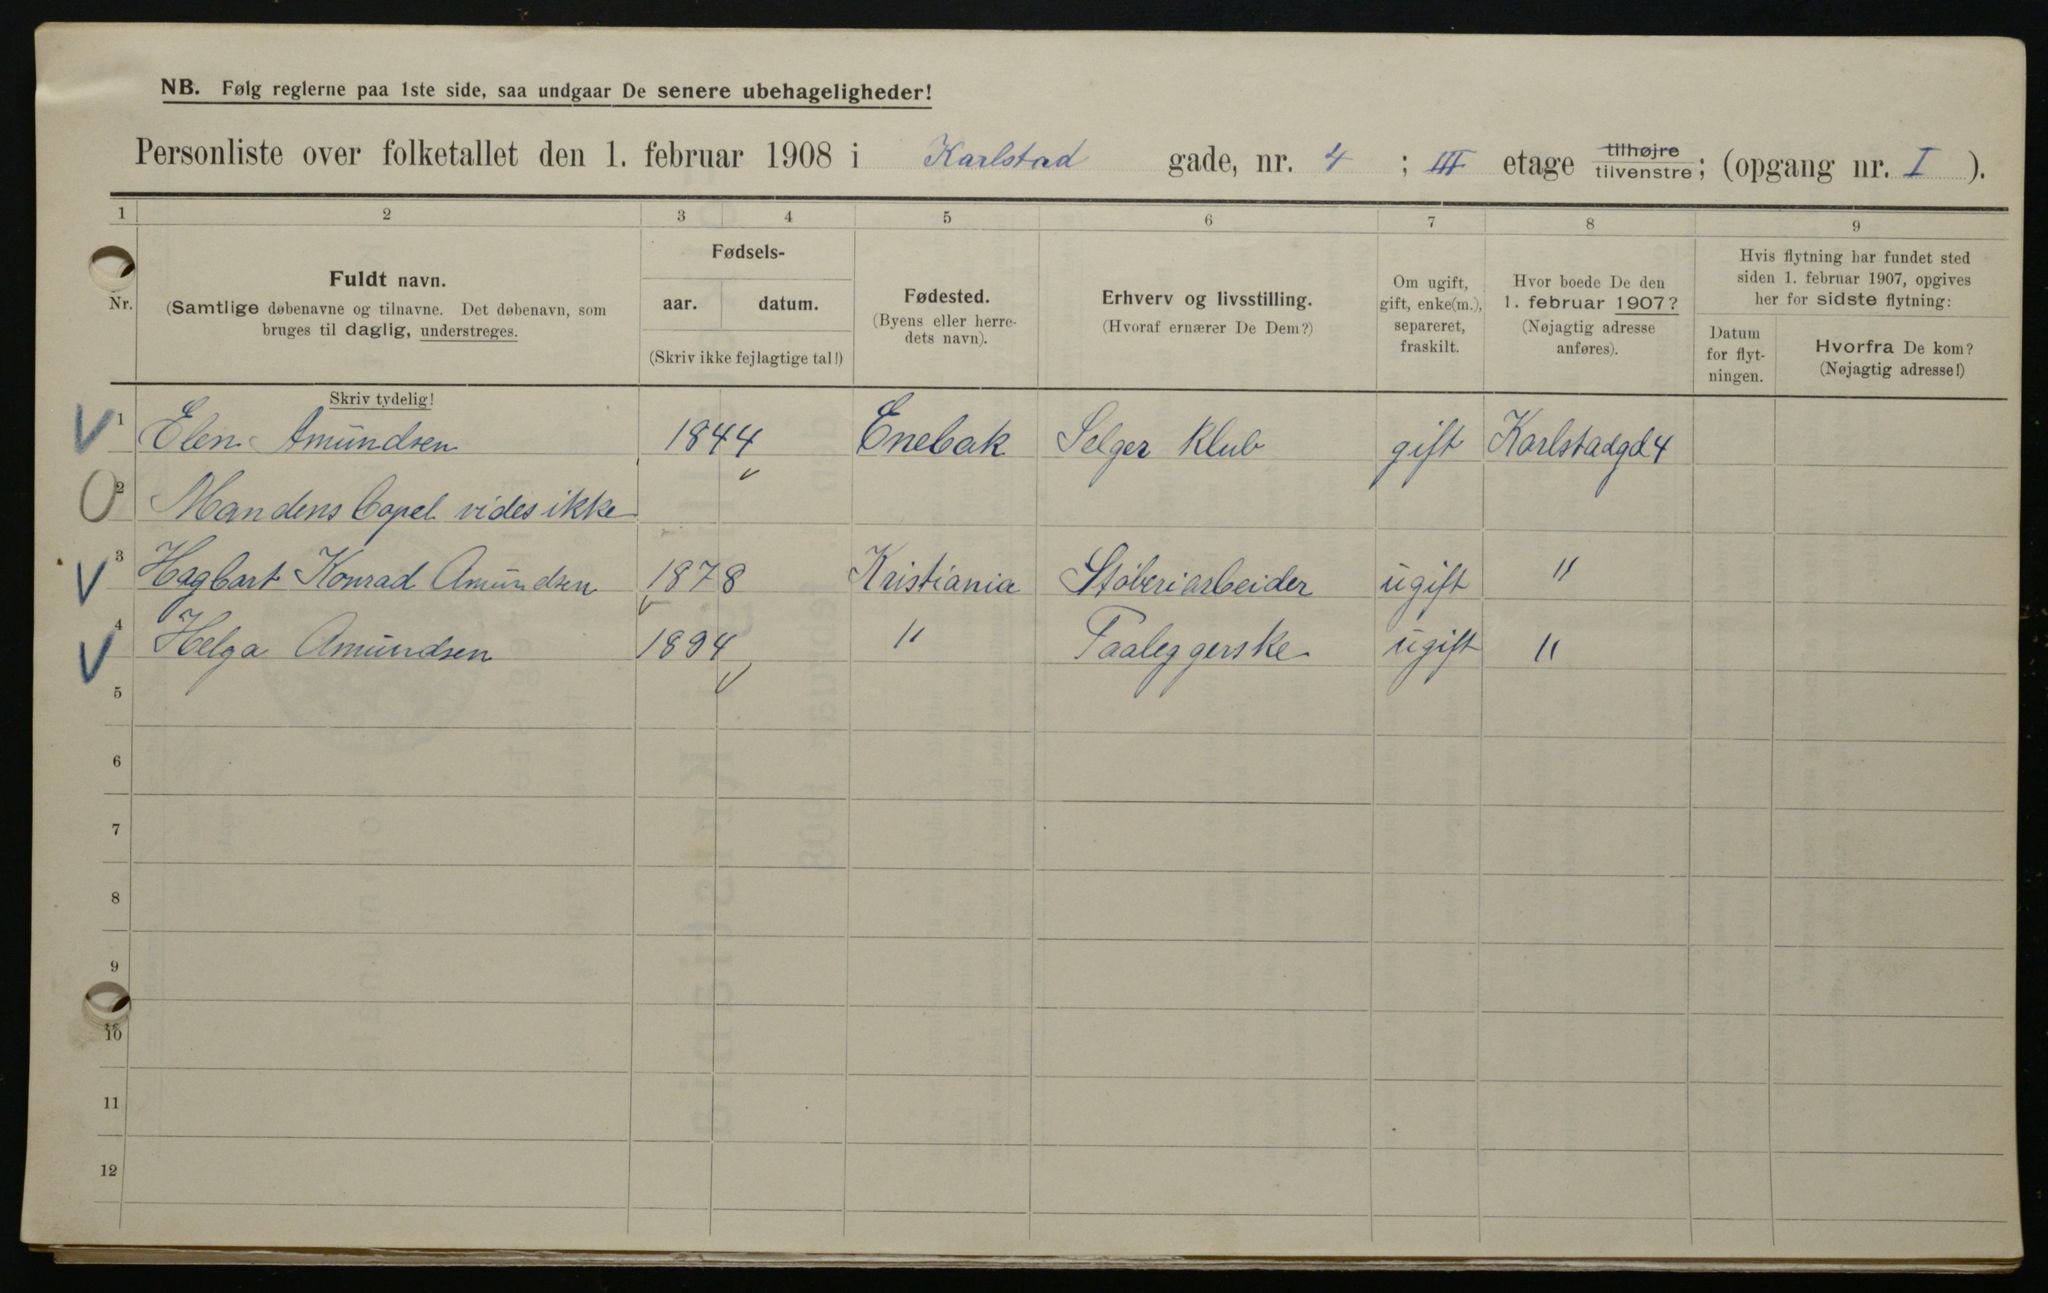 NB. Følg reglerne paa 1ste side, saa undgaar De senere ubehageligheder!
Personliste over folketallet den 1. februar 1908 i Karlstad gade, nr. 4 ; III etage tilhøjre tilvenstre; (opgang nr. I ).
1 2 3 4 5 6 7 8 9
Nr.
Fuldt navn.
(Samtlige døbenavne og tilnavne. Det døbenavn, som
bruges til daglig, understreges.
Skriv tydelig!
Fødsels-
aar. datum.
(Skriv ikke fejlagtige tal!)
Fødested.
(Byens eller herre-
dets navn).
Erhverv og livsstilling.
(Hvoraf ernærer De Dem?)
Om ugift,
gift, enke(m.),
separeret,
fraskilt.
Hvor boede De den
1. februar 1907?
(Nøjagtig adresse
anføres).
Hvis flytning har fundet sted
siden 1. februar 1907, opgives
her for sidste flytning:
Datum
for flyt-
ningen.
Hvorfra De kom?
(Nøjagtig adresse!)
1 Elen Amundsen 1844 Enebak Selger Klub gift Karlstadgd 4
2 Mandens Copel vides ikke
3 Hagbart Konrad Amundsen 1878 Kristiania Støberiarbeider ugift "
4 Helga Amundsen 1894 " Paaleggerske ugift "
5
6
7
8
9
10
11
12